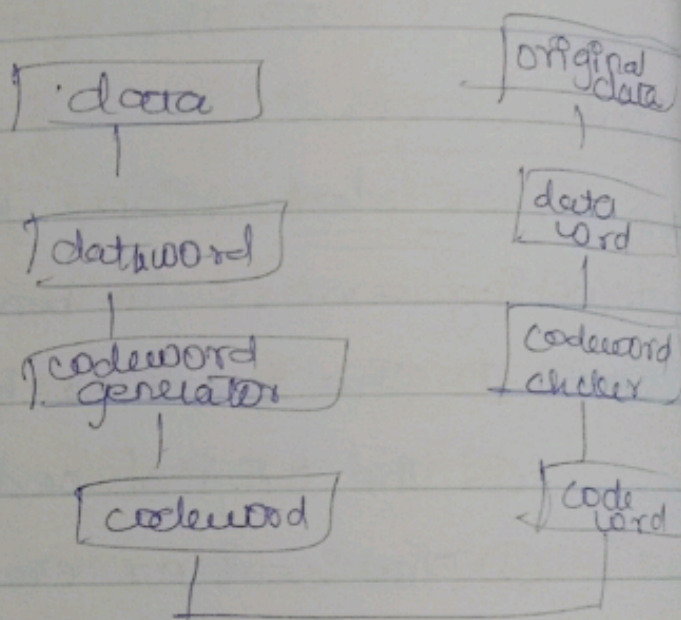 data
dataword
codeword
generator
codewood
original
data
data
word
codeword
checker
code
word